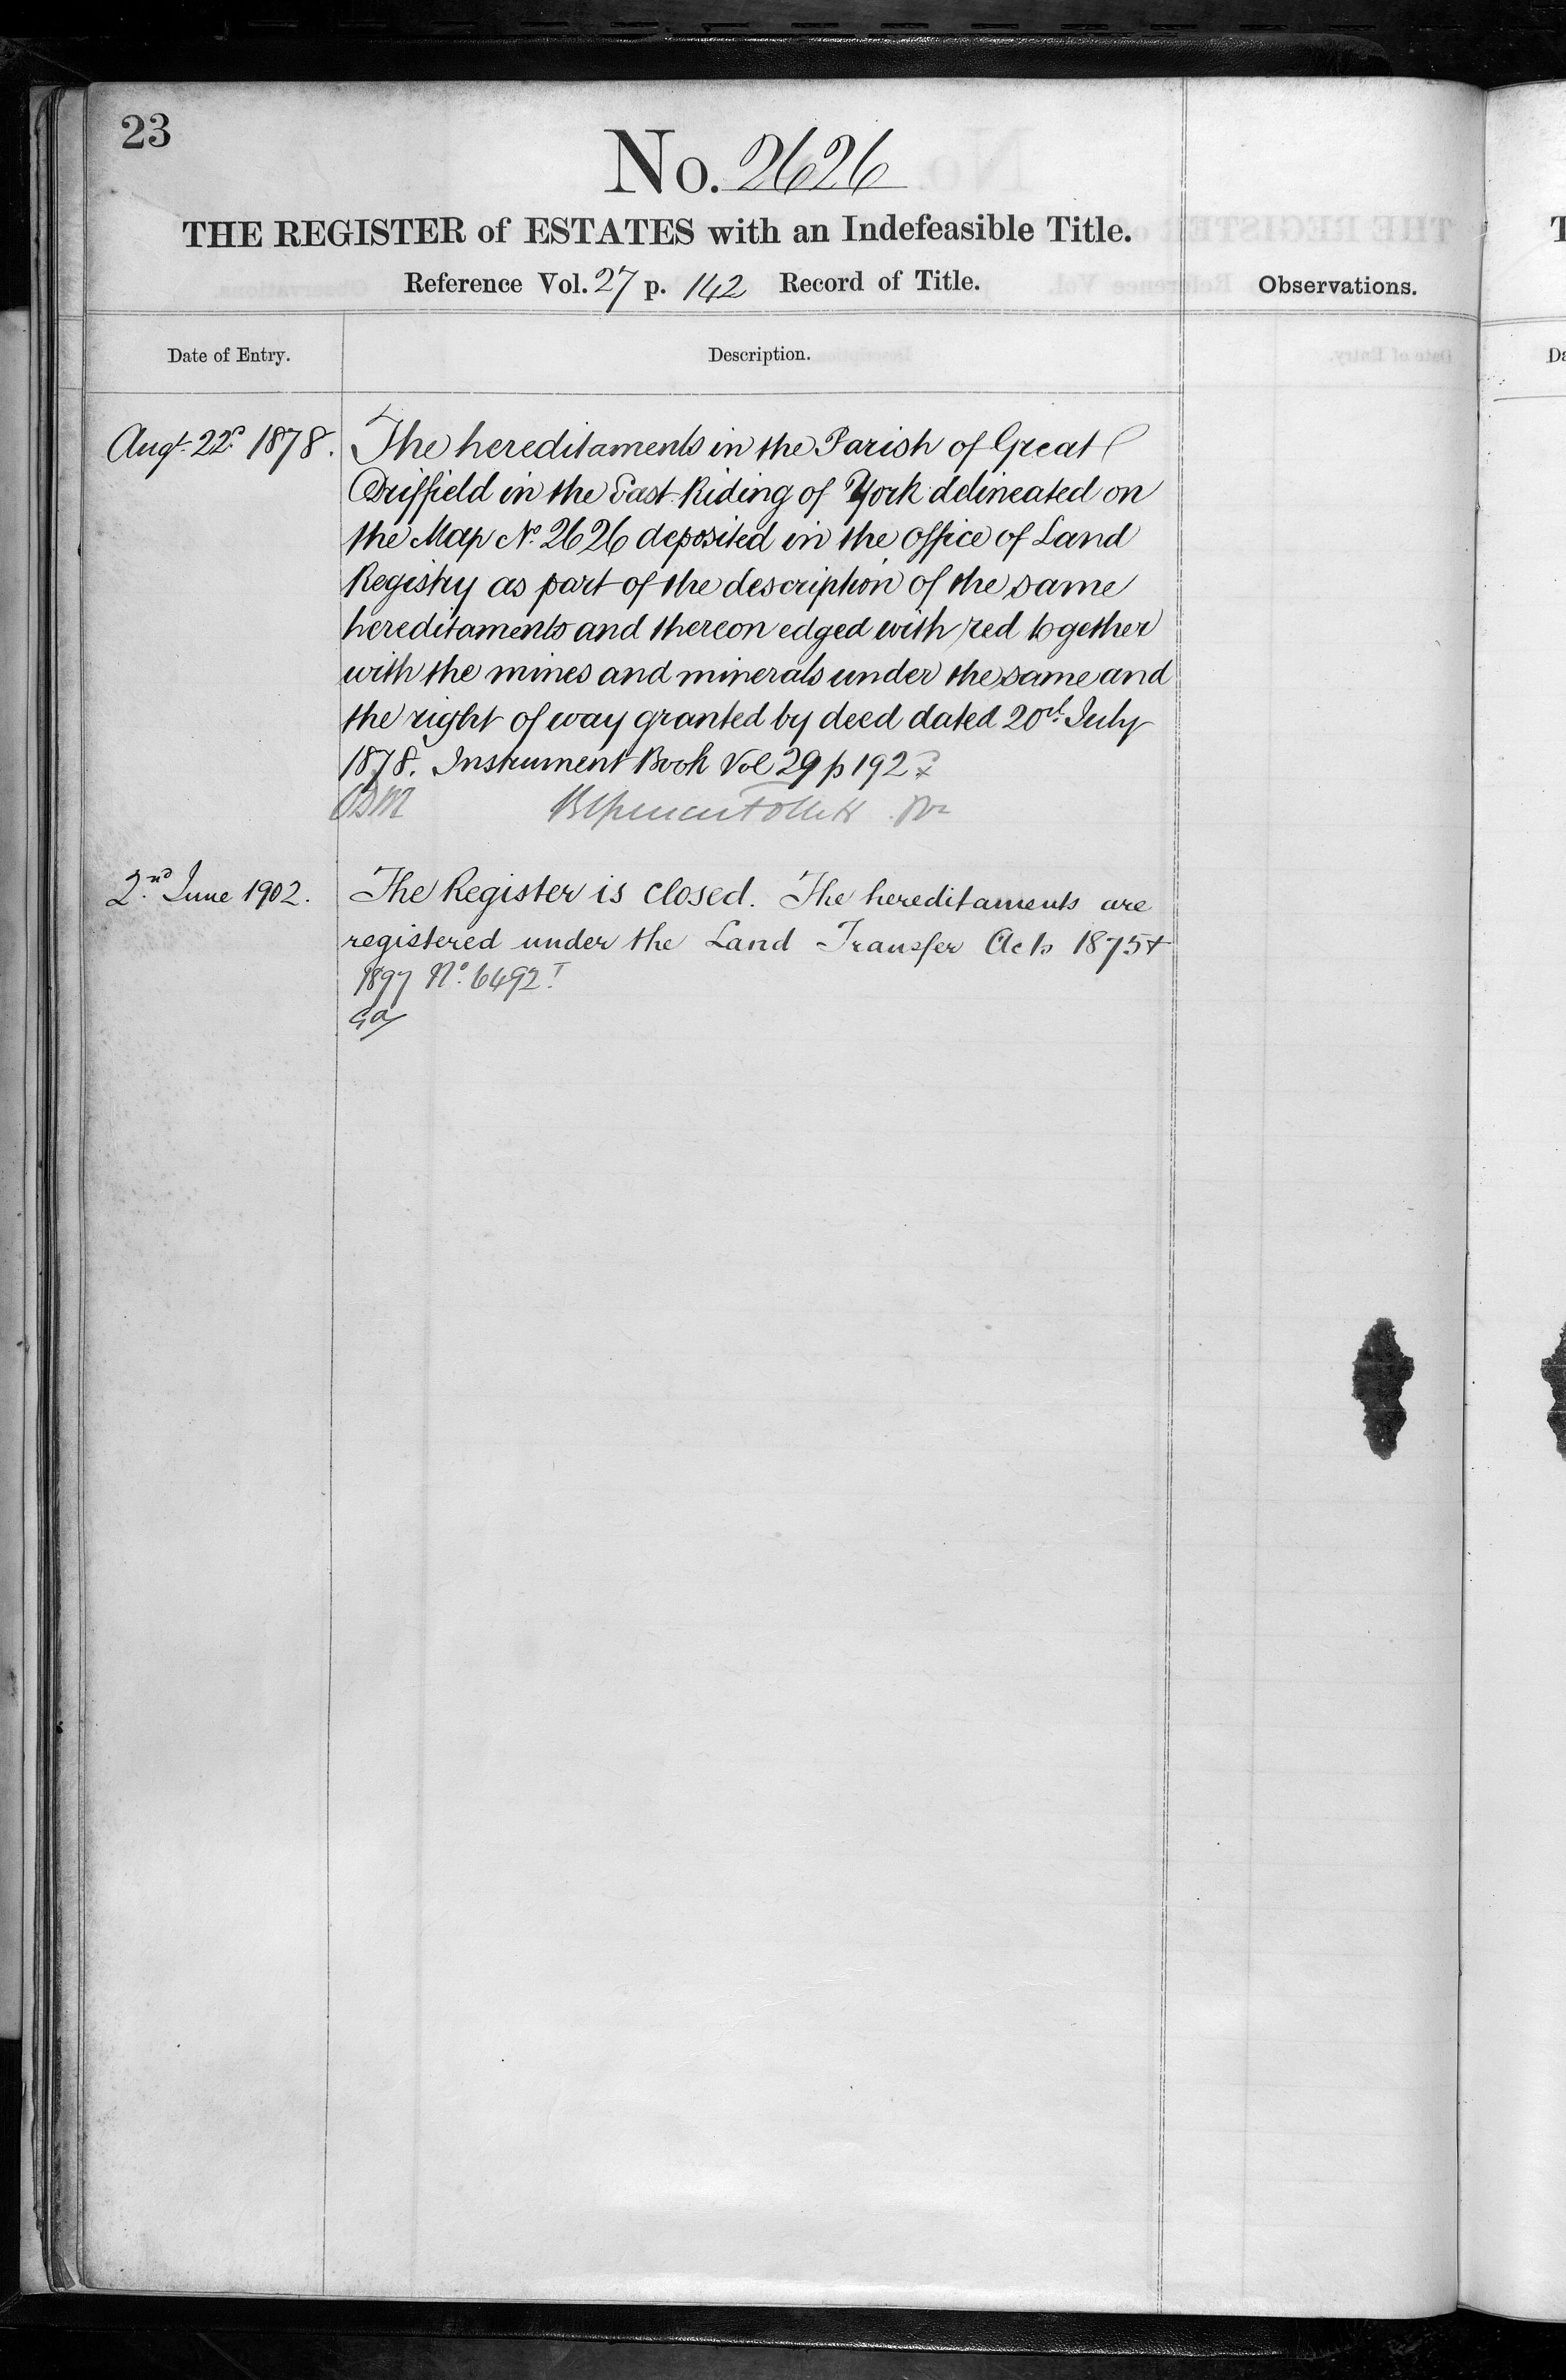 23
No. 2626
THE REGISTER of ESTATES with an Indefeasible Title.
Reference Vol. 27 p. 142 Record of Title.
Observations.
Date of Entry.
Description.
Augt. 22d. 1878.
The hereditaments in the Parish of Great
Driffield in the East Riding of York delineated on
the Map No. 2626 deposited in the office of Land
Registry as part of the description of the same
hereditaments and thereon edged with red together
with the mines and minerals under the same and
the right of way granted by deed dated 20th. July
1878. Instrument Book Vol 29 p 192
2nd. June 1902.
The Register is closed. The hereditaments are
registered under the Land Transfer Acts 1875 +
1897 No. 6492